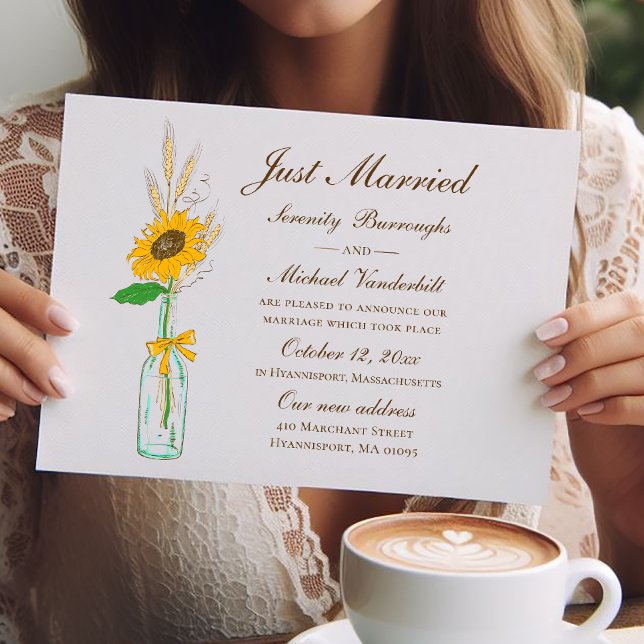 Just Married
Serenity Burroughs
AND
Michael Vanderbilt
ARE PLEASED TO ANNOUNCE OUR
MARRIAGE WHICH TOOK PLACE
October 12, 20xx
IN HYANNISPORT, MASSACHUSETTS
Our new address
410 MARCHANT STREET
HYANNISPORT, MA 01095